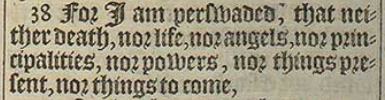 38 For I am perswaded, that nei-
ther death, nor life, nor angels, nor prin-
cipalities, nor powers, nor things pre-
sent, nor things to come,